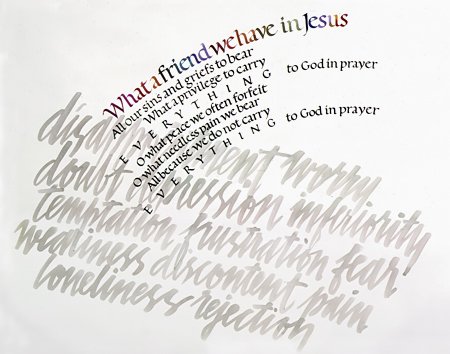 What a friend we have in Jesus
All our sins and griefs to bear
What a privilege to carry
EVERYTHING to God in prayer
O what peace we often forfeit
O what needless pain we bear
All because we do not carry
EVERYTHING to God in prayer
worry
doubt depression inferiority
temptation frustration fear
weariness discontent pain
loneliness rejection